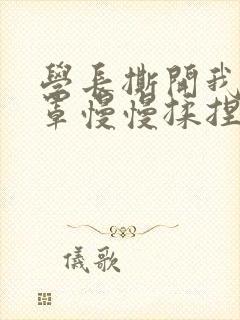 學長撕開我
罩慢慢揉捏
儀歌